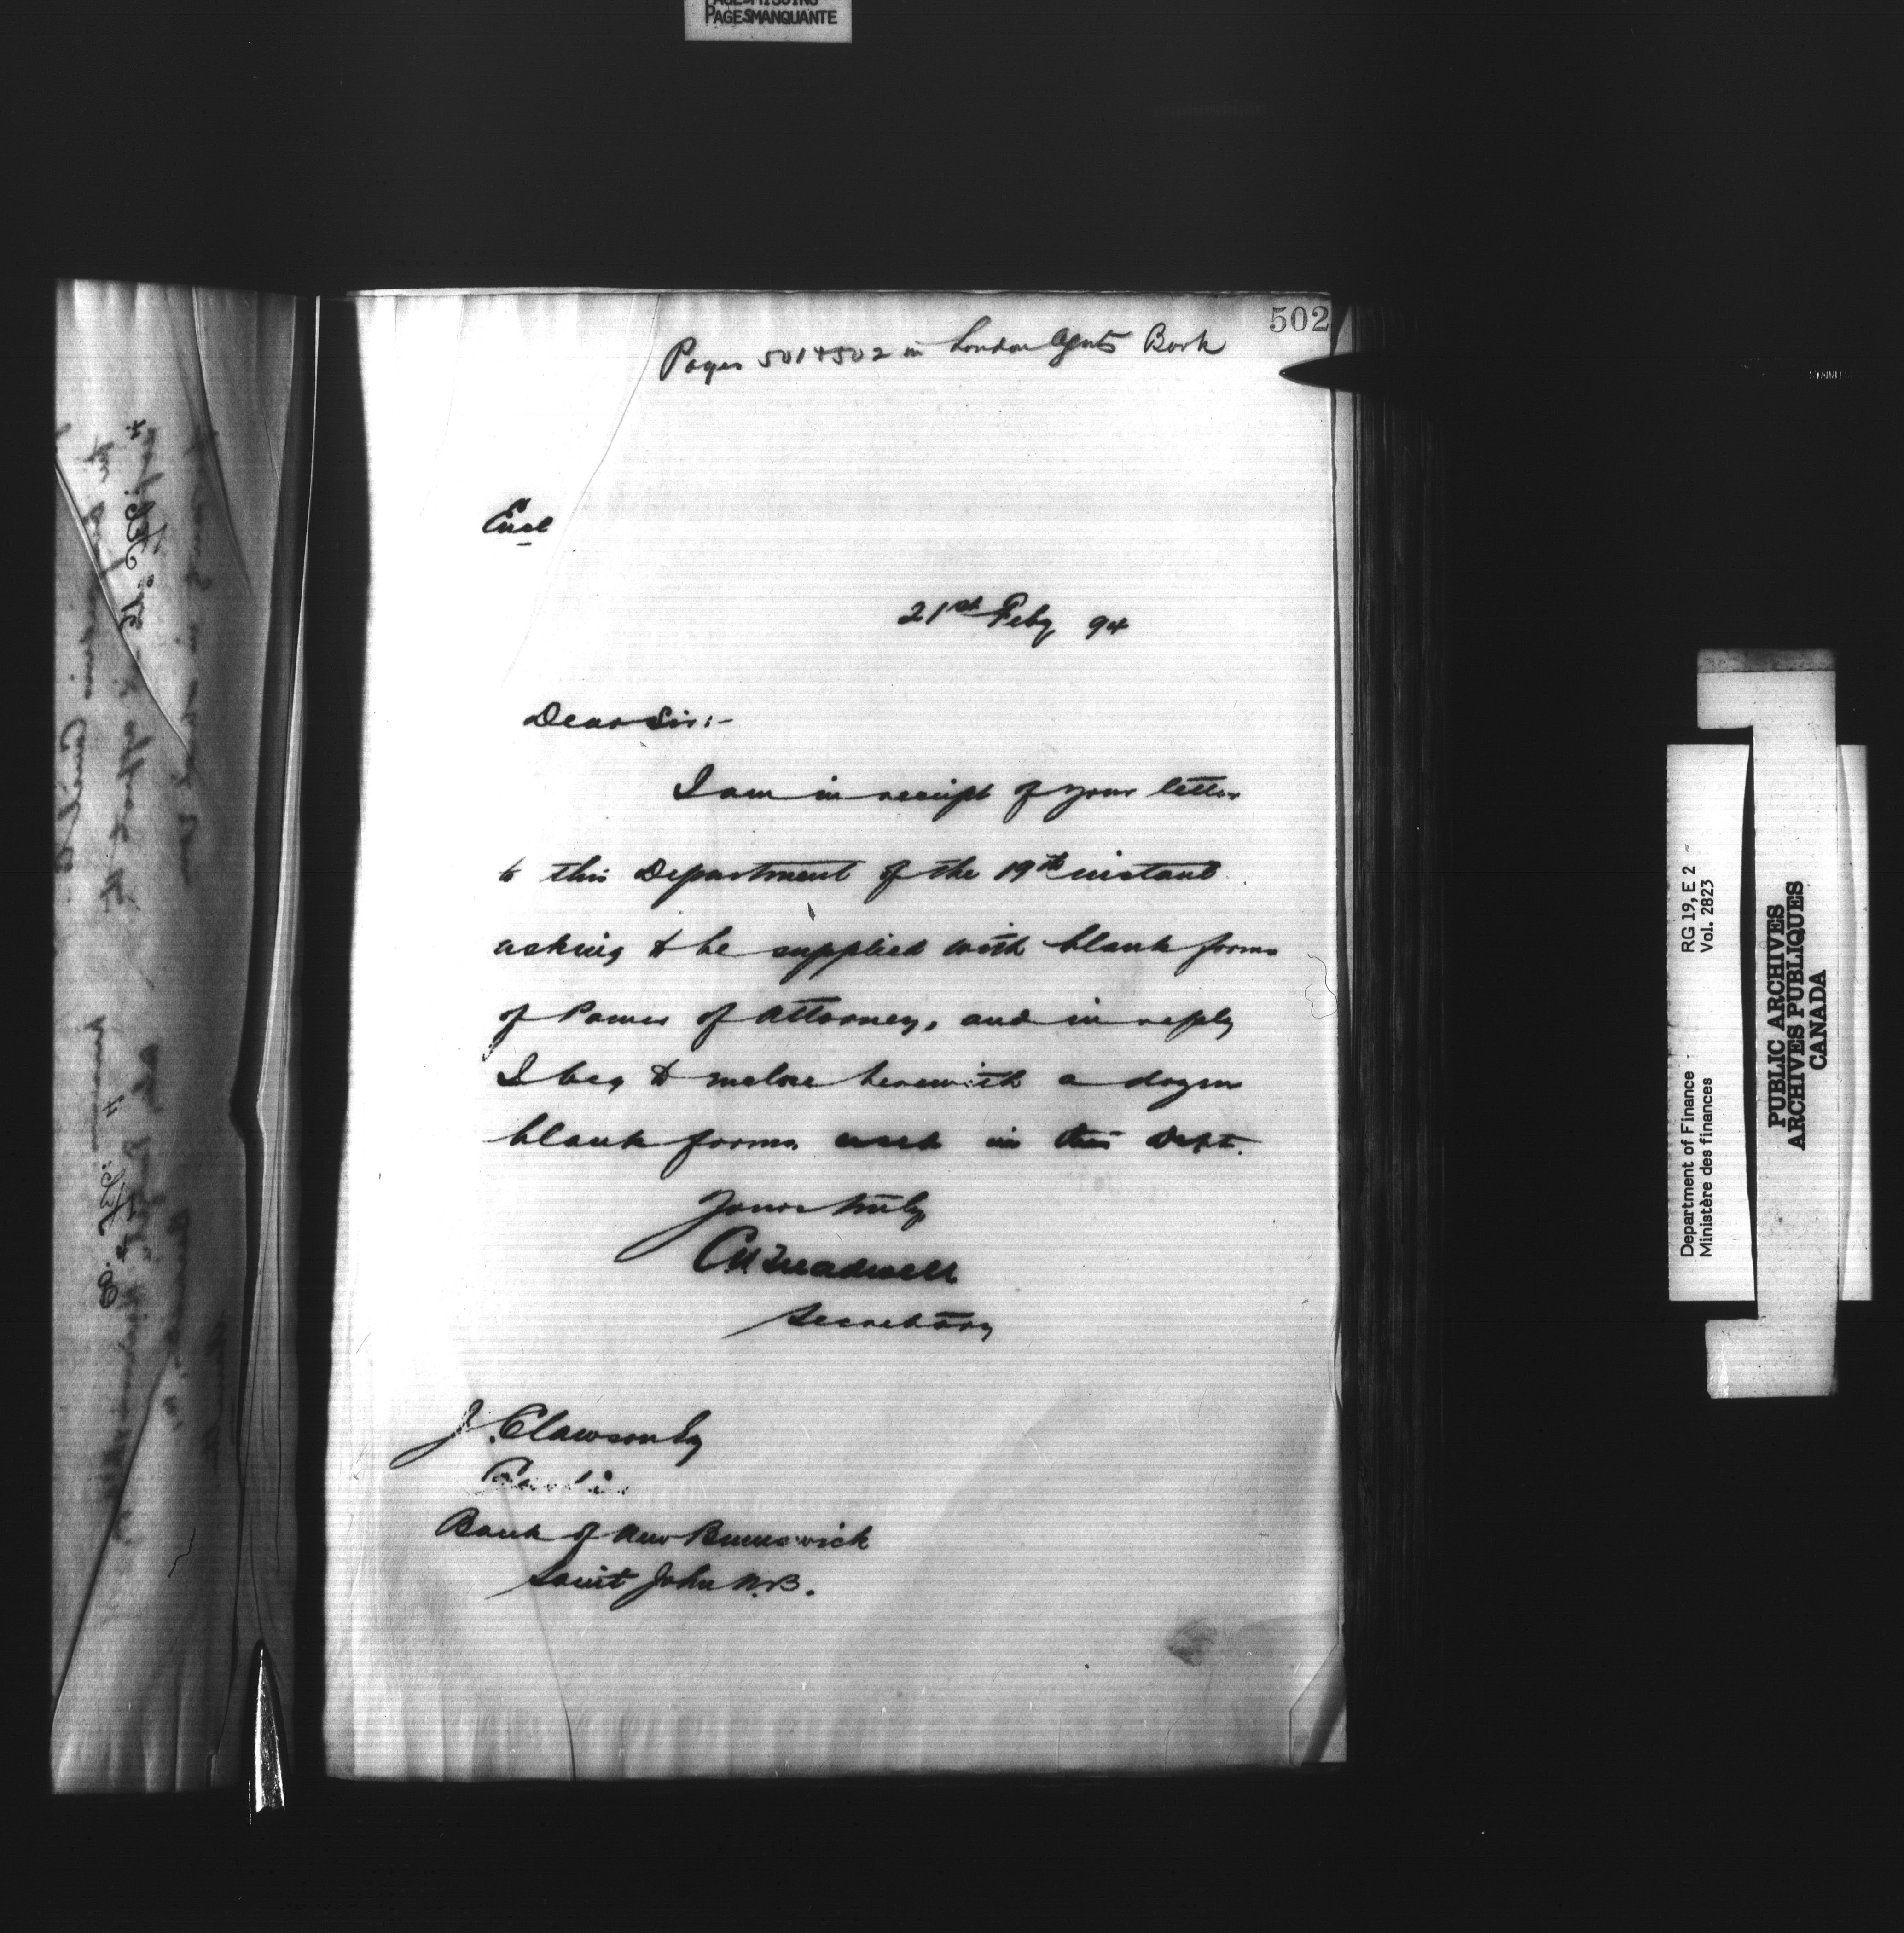 PAGES MISSING
PAGES MANQUANTE
502
Pages 501 & 502 in London Agents Book
Encl
21st Feby 94
Dear Sir:-
I am in receipt of your letter
to this Department of the 19th instant
asking to be supplied with blank forms
of Power of Attorney, and in reply
I beg to enclose herewith a dozen
blank forms used in this Dept.
Yours truly
Secretary
J. Clawson Esq
Bank of New Brunswick
Saint John N.B.
Department of Finance
Ministère des finances
RG 19, E 2
Vol. 2823
PUBLIC ARCHIVES
ARCHIVES PUBLIQUES
CANADA